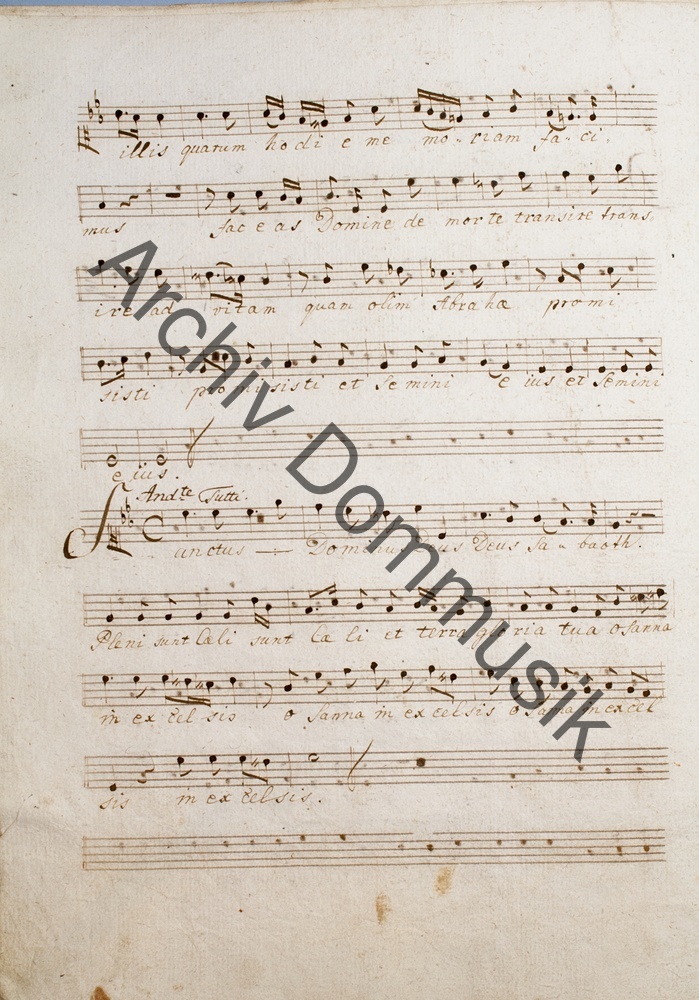 illis quarum hodi e me mo- riam fa- ci.
mus fac e as Domine de morte transire trans
ire ad vitam quam olim Abrahæ promi
sisti promisisti et Semini e ius et Semini
e ius.
Andte Tutti.
Sanctus Dominus Deus Deus Sa- baoth.
Pleni sunt Cæli sunt Cæ li et terra glo ria tua oSanna
in ex cel sis o Sanna in ex cel sis o Sanna in excel
sis in ex cel sis.
Archiv Dommusik